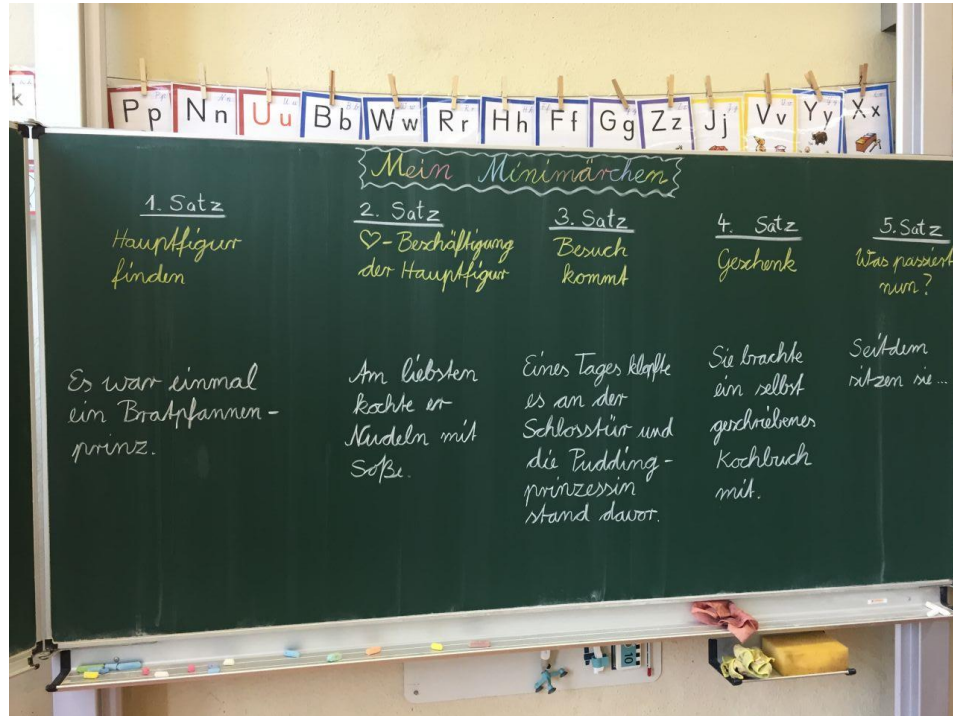 k
Pp Nn Uu Bb Ww Rr Hh Ff Gg Zz Jj Vv Yy Xx
Mein Minimärchen
1. Satz
Hauptfigur
finden
Es war einmal
ein Bratpfannen-
prinz.
2. Satz
♡-Beschäftigung
der Hauptfigur
Am liebsten
kochte er
Nudeln mit
Soße.
3. Satz
Besuch
kommt
Eines Tages klopfte
es an der
Schlosstür und
die Pudding-
prinzessin
stand davor.
4. Satz
Geschenk
Sie brachte
ein selbst
geschriebenes
Kochbuch
mit.
5. Satz
Was passiert
nun?
Seitdem
sitzen sie...